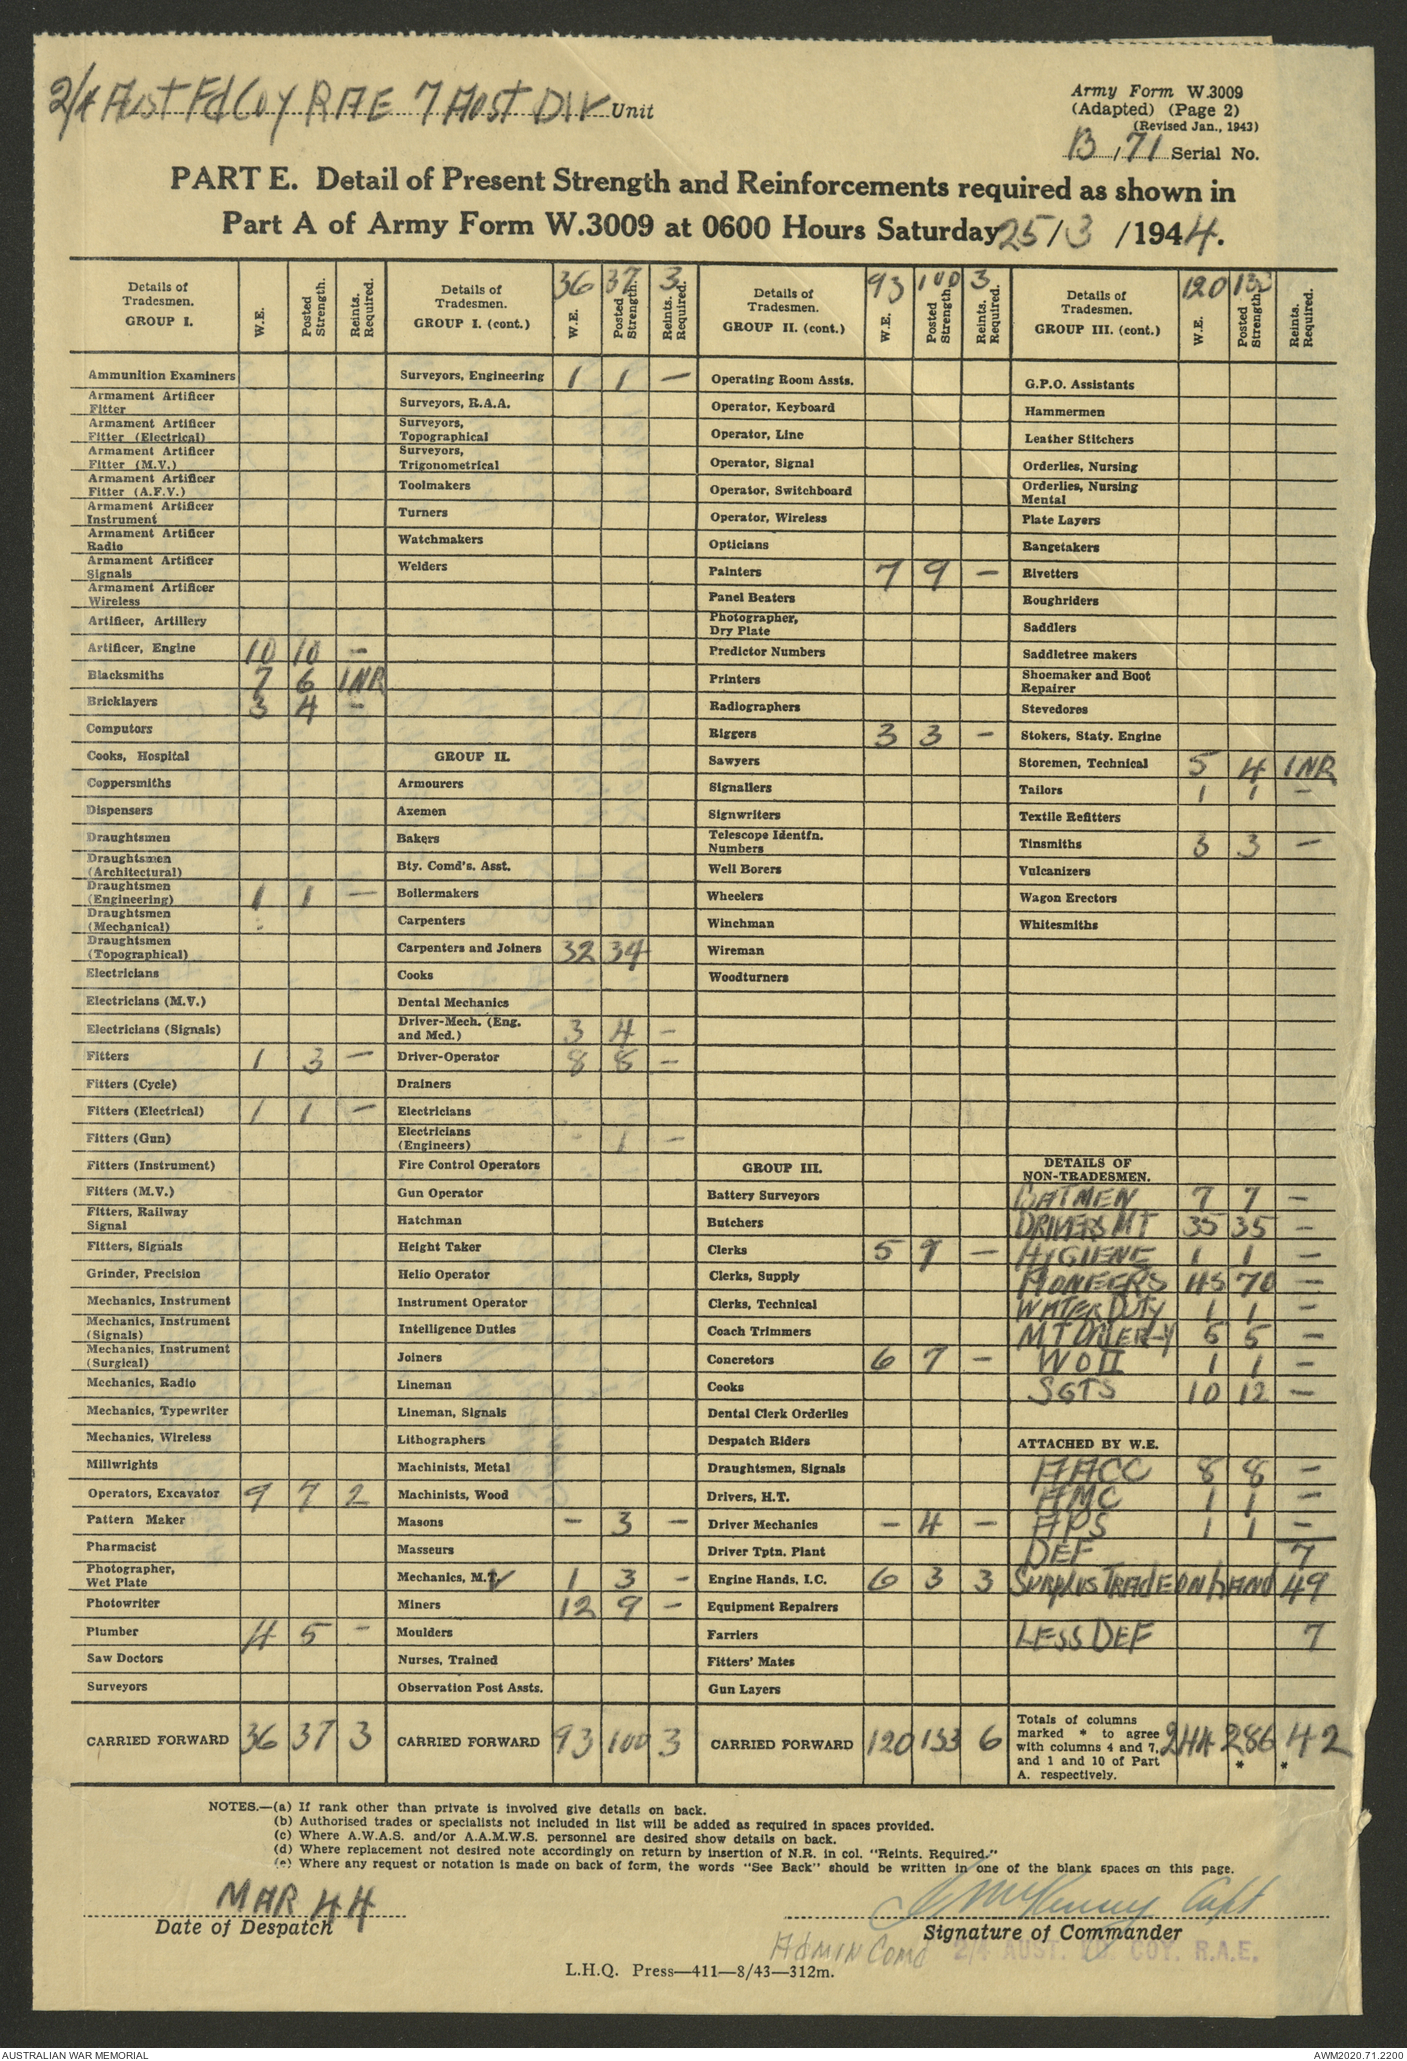 2/4 Aust Fd Coy RAE 7 Aust Div Unit
Army Form W.3009
(Adapted) (Page 2)
(Revised Jan., 1943)
B /71 Serial No.
PART E. Detail of Present Strength and Reinforcements required as shown in
Part A of Army Form W.3009 at 0600 Hours Saturday 25/3/1944.
Details of Tradesmen. GROUP I. W.E. Posted Strength. Reints. Required.
Ammunition Examiners
Armament Artificer Fitter
Armament Artificer Fitter (Electrical)
Armament Artificer Fitter (M.V.)
Armament Artificer Fitter (A.F.V.)
Armament Artificer Instrument
Armament Artificer Radio
Armament Artificer Signals
Armament Artificer Wireless
Artificer, Artillery
Artificer, Engine 10 10 -
Blacksmiths 7 6 1NR
Bricklayers 3 4 -
Computors
Cooks, Hospital
Coppersmiths
Dispensers
Draughtsmen
Draughtsmen (Architectural)
Draughtsmen (Engineering) 1 1 -
Draughtsmen (Mechanical)
Draughtsmen (Topographical)
Electricians
Electricians (M.V.)
Electricians (Signals)
Fitters 1 3 -
Fitters (Cycle)
Fitters (Electrical) 1 1 -
Fitters (Gun)
Fitters (Instrument)
Fitters (M.V.)
Fitters, Railway Signal
Fitters, Signals
Grinder, Precision
Mechanics, Instrument
Mechanics, Instrument (Signals)
Mechanics, Instrument (Surgical)
Mechanics, Radio
Mechanics, Typewriter
Mechanics, Wireless
Millwrights
Operators, Excavator 9 7 2
Pattern Maker
Pharmacist
Photographer, Wet Plate
Photowriter
Plumber 4 5 -
Saw Doctors
Surveyors
CARRIED FORWARD 36 37 3
Details of Tradesmen. GROUP I. (cont.) 36 W.E. 37 Posted Strength. 3 Reints. Required.
Surveyors, Engineering 1 1 -
Surveyors, R.A.A.
Surveyors, Topographical
Surveyors, Trigonometrical
Toolmakers
Turners
Watchmakers
Welders
GROUP II.
Armourers
Axemen
Bakers
Bty. Comd's. Asst.
Boilermakers
Carpenters
Carpenters and Joiners 32 34
Cooks
Dental Mechanics
Driver-Mech. (Eng. and Med.) 3 4 -
Driver-Operator 8 8 -
Drainers
Electricians
Electricians (Engineers) - 1 -
Fire Control Operators
Gun Operator
Hatchman
Height Taker
Helio Operator
Instrument Operator
Intelligence Duties
Joiners
Lineman
Lineman, Signals
Lithographers
Machinists, Metal
Machinists, Wood
Masons - 3 -
Masseurs
Mechanics, M.T. 1 3 -
Miners 12 9 -
Moulders
Nurses, Trained
Observation Post Assts.
CARRIED FORWARD 93 100 3
Details of Tradesmen. GROUP II. (cont.) 93 W.E. 100 Posted Strength. 3 Reints. Required.
Operating Room Assts.
Operator, Keyboard
Operator, Line
Operator, Signal
Operator, Switchboard
Operator, Wireless
Opticians
Painters 7 9 -
Panel Beaters
Photographer, Dry Plate
Predictor Numbers
Printers
Radiographers
Riggers 3 3 -
Sawyers
Signallers
Signwriters
Telescope Identfn. Numbers
Well Borers
Wheelers
Winchman
Wireman
Woodturners
GROUP III.
Battery Surveyors
Butchers
Clerks 5 7 -
Clerks, Supply
Clerks, Technical
Coach Trimmers
Concretors 6 7 -
Cooks
Dental Clerk Orderlies
Despatch Riders
Draughtsmen, Signals
Drivers, H.T.
Driver Mechanics - 4 -
Driver Tptn. Plant
Engine Hands, I.C. 6 3 3
Equipment Repairers
Farriers
Fitters' Mates
Gun Layers
CARRIED FORWARD 120 133 6
Details of Tradesmen. GROUP III. (cont.) 120 W.E. 133 Posted Strength. Reints. Required.
G.P.O. Assistants
Hammermen
Leather Stitchers
Orderlies, Nursing
Orderlies, Nursing Mental
Plate Layers
Rangetakers
Rivetters
Roughriders
Saddlers
Saddletree makers
Shoemaker and Boot Repairer
Stevedores
Stokers, Staty. Engine
Storemen, Technical 5 4 1NR
Tailors 1 1 -
Textile Refitters
Tinsmiths 3 3 -
Vulcanizers
Wagon Erectors
Whitesmiths
DETAILS OF NON-TRADESMEN.
BATMEN 7 7 -
DRIVERS MT 35 35 -
HYGIENE 1 1 -
PIONEERS 45 70 -
WATER DUTY 1 1 -
MT ORDER-Y 5 5 -
WO II 1 1 -
SGTS 10 12 -
ATTACHED BY W.E.
AACC 8 8 -
AMC 1 1 -
APS 1 1 -
DEF 7
SURPLUS TRADE ON HAND 49
LESS DEF 7
Totals of columns marked * to agree with columns 4 and 7, and 1 and 10 of Part A. respectively. 244 286 * 42 *
NOTES.—(a) If rank other than private is involved give details on back.
(b) Authorised trades or specialists not included in list will be added as required in spaces provided.
(c) Where A.W.A.S. and/or A.A.M.W.S. personnel are desired show details on back.
(d) Where replacement not desired note accordingly on return by insertion of N.R. in col. "Reints. Required."
(e) Where any request or notation is made on back of form, the words "See Back" should be written in one of the blank spaces on this page.
MAR 44
Date of Despatch
McKenny Capt
Signature of Commander
Admin Comd 2/4 AUST. FD COY. R.A.E.
L.H.Q. Press—411—8/43—312m.
AUSTRALIAN WAR MEMORIAL
AWM2020.71.2200